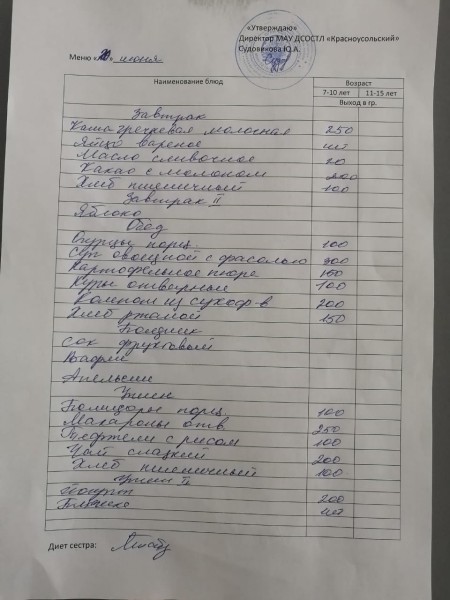 «Утверждаю»
Директор МАУ ДСОСТЛ «Красноусольский»
Судовикова Ю.А.
Меню «20» июня
Наименование блюд Возраст
7-10 лет 11-15 лет
Выход в гр.
Завтрак
Каша гречневая молочная 250
Яйцо вареное шт
Масло сливочное 20
Какао с молоком 200
Хлеб пшеничный 100
Завтрак II
Яблоко
Обед
Огурцы порц. 100
Суп овощной с фасолью 300
Картофельное пюре 150
Куры отварные 100
Компот из сухоф-в 200
Хлеб ржаной 150
Полдник
Сок фруктовый
Вафли
Апельсин
Ужин
Помидоры порц. 100
Макароны отв. 250
Тефтели с рисом 100
Чай сладкий 200
Хлеб пшеничный 100
Ужин II
Йогурт 200
шт
Диет сестра: